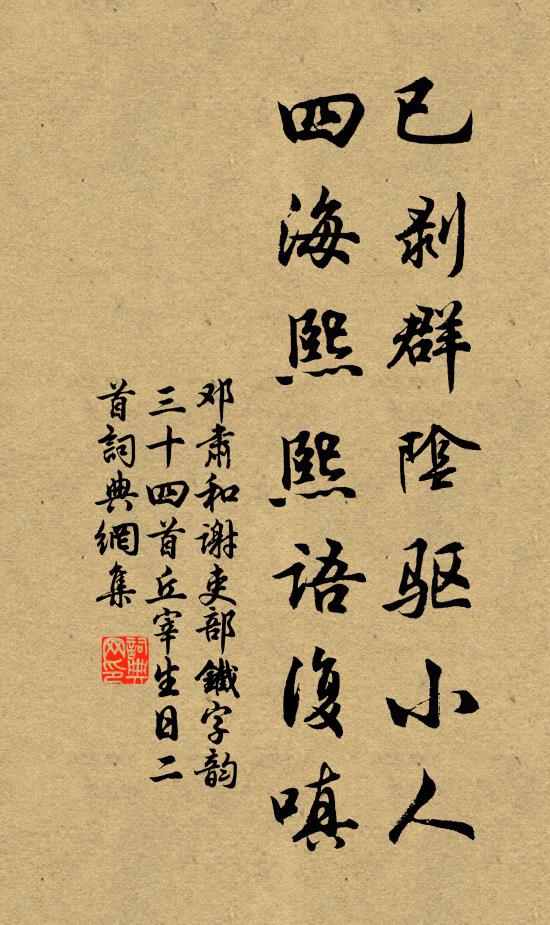 已剥群陰驱小人
四海熙熙語復嗔
邓肃和谢吏部鐵字韵
三十四首丘宰生日二
首詞典網集
詞典
网印